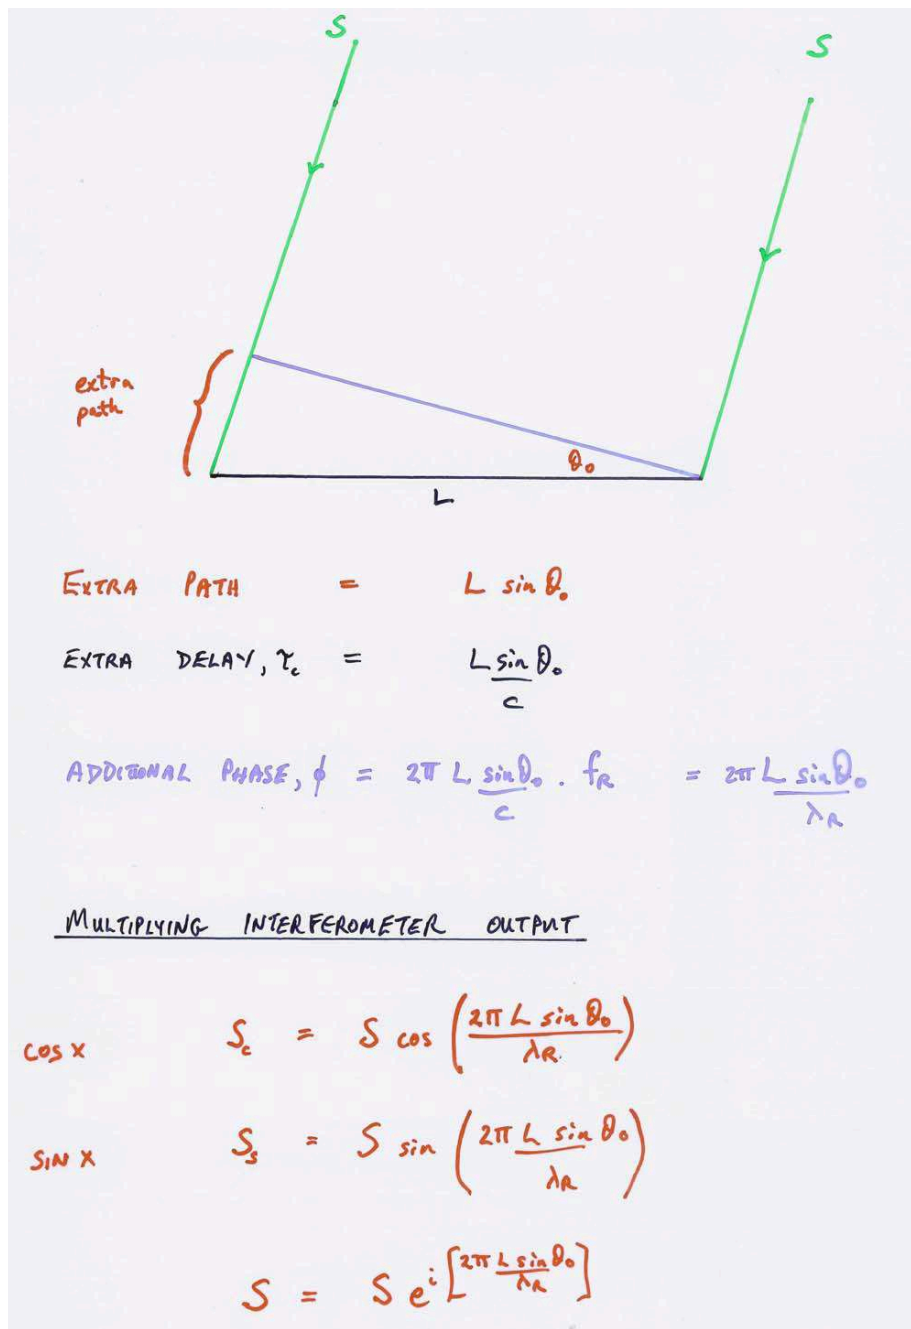 S S
extra
path
θ₀
L
EXTRA PATH = L sin θ₀
EXTRA DELAY, τc = L sin θ₀ / c
ADDITIONAL PHASE, ϕ = 2π L sin θ₀ / c . fR = 2π L sin θ₀ / λR
MULTIPLYING INTERFEROMETER OUTPUT
COS X Sc = S cos (2π L sin θ₀ / λR)
SIN X Ss = S sin (2π L sin θ₀ / λR)
S = S e^i[2π L sin θ₀ / λR]